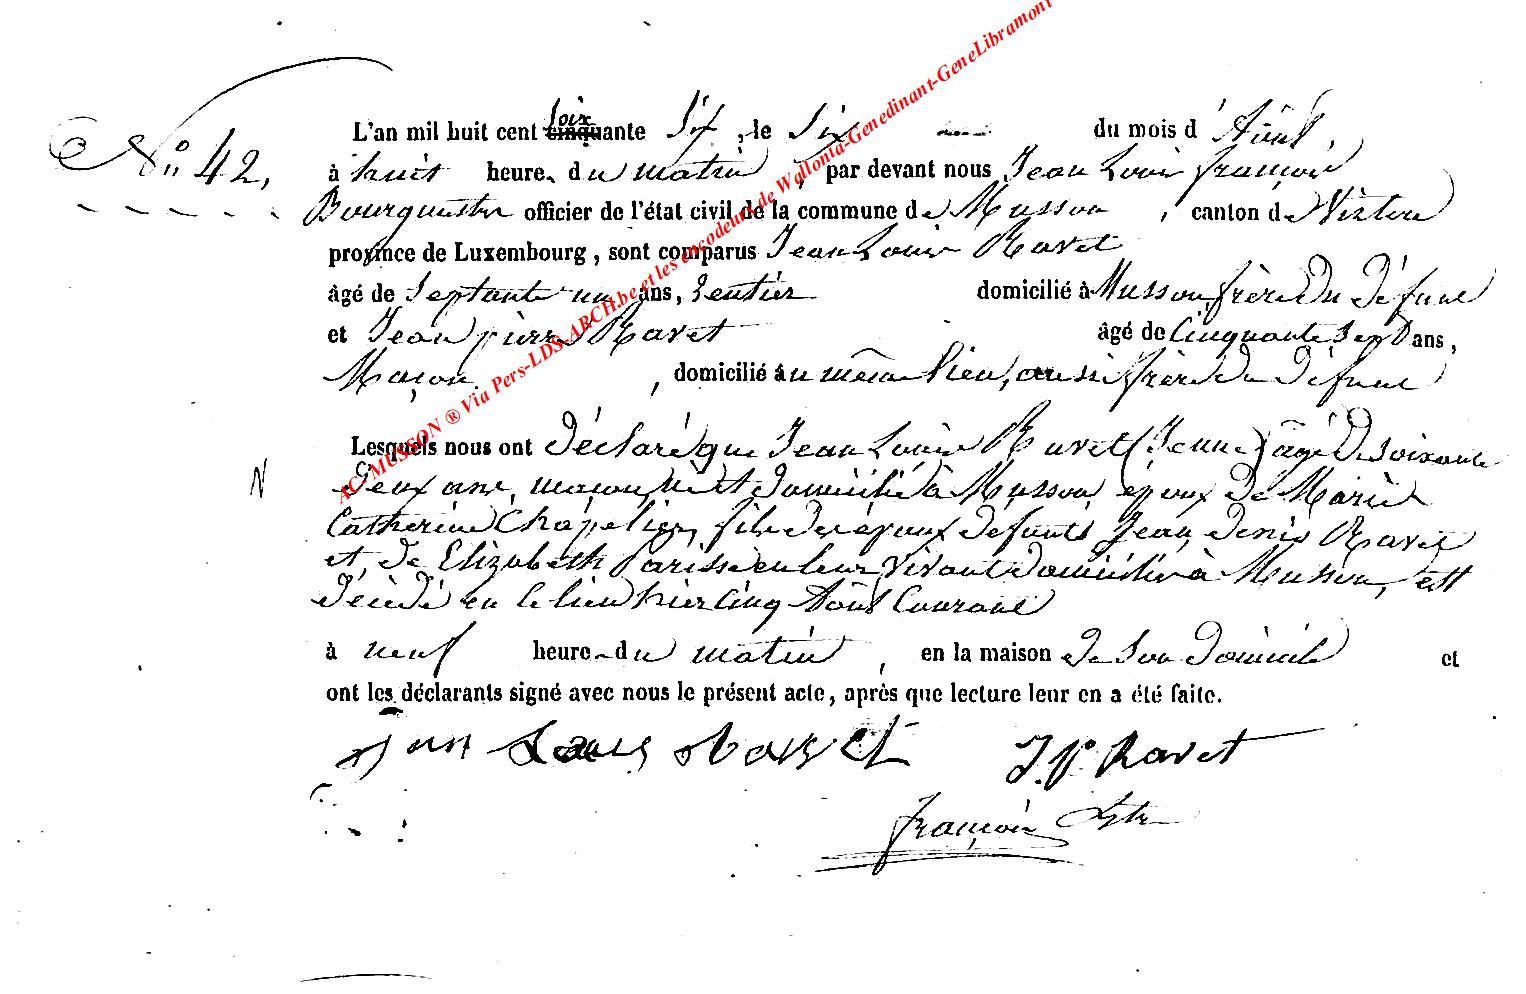 N° 42,
L'an mil huit cent soixante six, le six du mois d'Août,
à huit heure du matin, par devant nous Jean Louis françois
Bourguestre officier de l'état civil de la commune de Musson, canton de Virton
province de Luxembourg, sont comparus Jean Louis Ravet
âgé de Septante un ans, Rentier domicilié à Musson, frère du défunt
et Jean pierre Ravet âgé de cinquante sept ans,
Maçon, domicilié au même lieu, aussi frère du défunt
Lesquels nous ont déclaré que Jean Louis Ravet (Jeune) âgé de soixante
N
deux ans, maçon, né et domicilié à Musson, époux de Marie
Catherine Chapelier, fils des époux défunts Jean denis Ravet
et de Elizabeth Parisse en leur vivant domiciliés à Musson, est
décédé en ce lieu hier cinq Août Courant
à neuf heure du matin, en la maison de son domicile et
ont les déclarants signé avec nous le présent acte, après que lecture leur en a été faite.
jean Louis Ravet J. P. Ravet
françois
AC MUSSON ® Via Pers-LDS-ARCH.be et les encodeurs de Wallonia-Genedinant-GeneLibramont